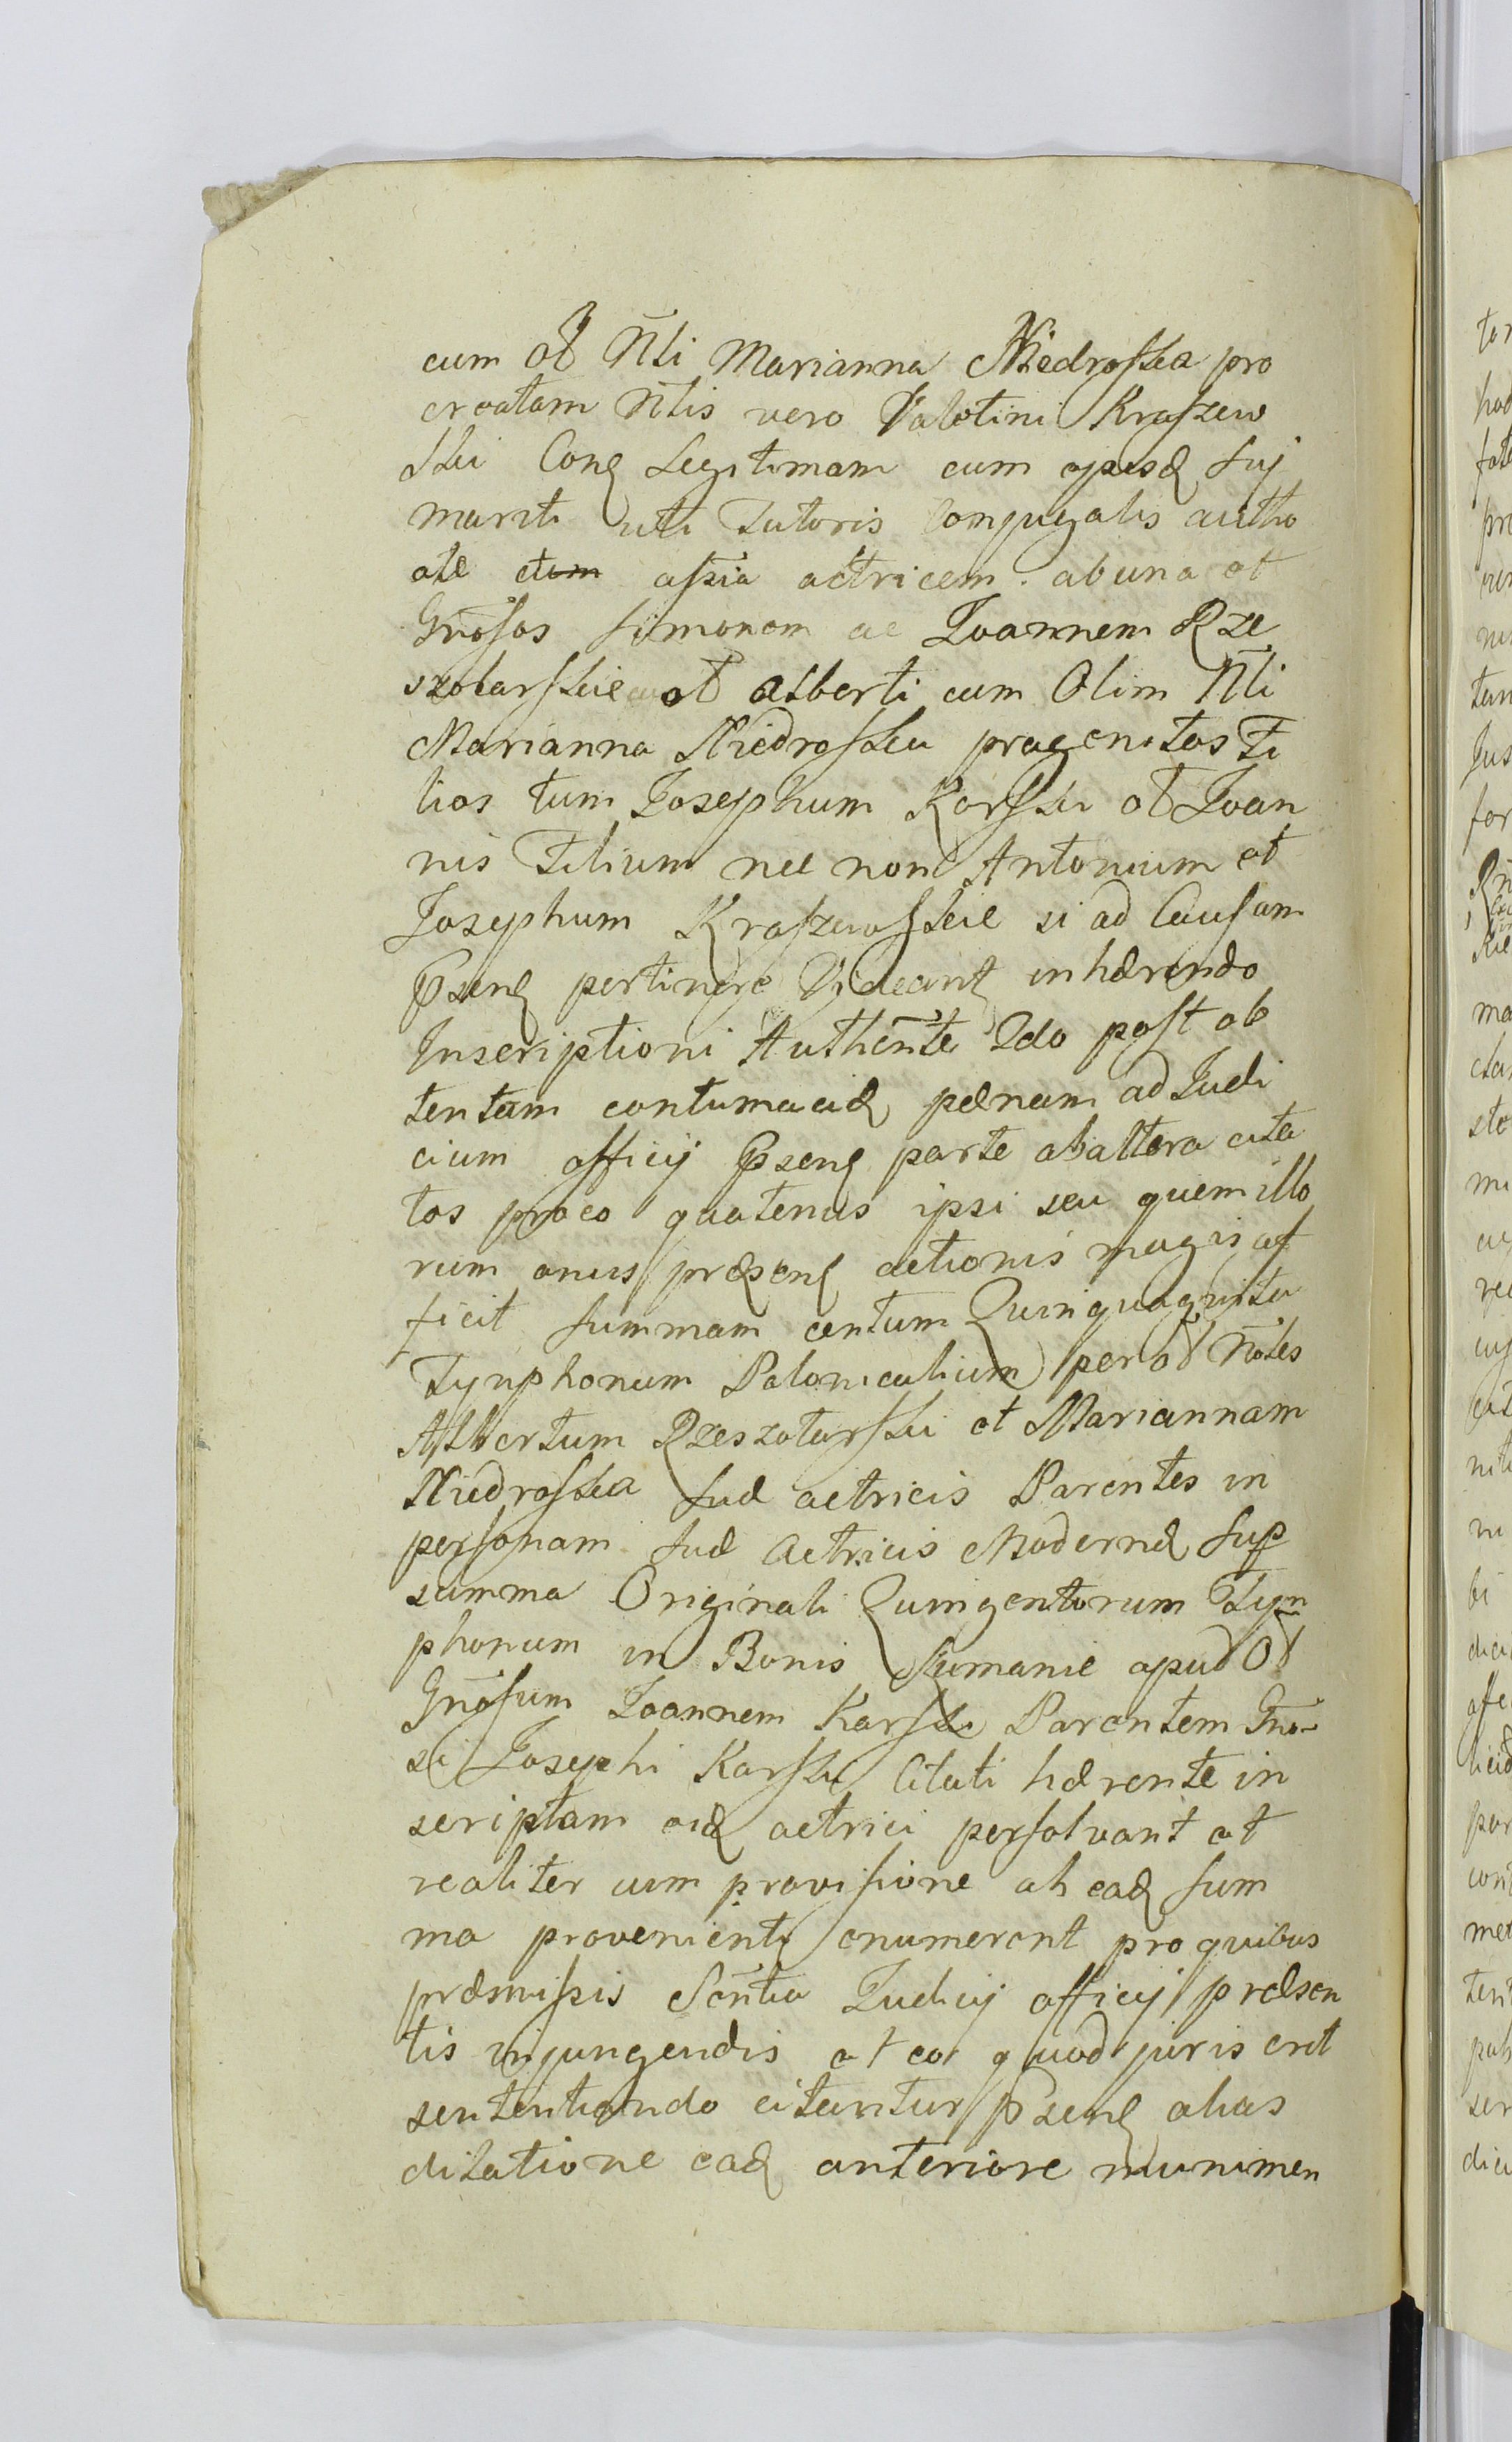 cum ol Nli Marianna Niedroska pro
creatam Nlis vero Valetini Kraszew
ski Cong Legitimam cum ejusd suj
mariti uti Tutoris Conjugalis autho
ate cum assia actricem ab una et
Gnosos Simonem ac Joannem Rze
szotarskie ol Alberti cum Olim Nli
Marianna Niedroska progenitos Fi
lios tum Josephum Karski ol Joan
nis Filium nec non Antonium et
Josephum Kraszewskie si ad Causam
pseng pertinere Videant inhærendo
Inscriptioni Authente 2do post ob
tentam contumaciæ pænam ad Judi
cium officij pseng parte ab altera cita
tos pro eo quatenus ipsi seu quem illo
rum onus præseng actionis magis af
ficit summam centum Quinquaginta
Tynphonum Polonicalium per ol Nobles
Albertum Rzeszotarski et Mariannam
Niedroska suæ actricis Parentes in
personam suæ Actricis Modernæ sup
summa Originali Quingentorum Tyn
phonum in Bonis Rumanie apud Ol
Gnosum Joannem Karski Parentem Gno
si Josephi Karski Citati hærente in
scriptam eid actrici persolvant et
realiter cum provisione ab ead sum
ma provenienti enumerent pro quibus
præmissis Sentia Judicij officij præsen
tis injungendis et eo quod juris erit
sententiando citantur pseng alias
dilatione ead anteriore munimen